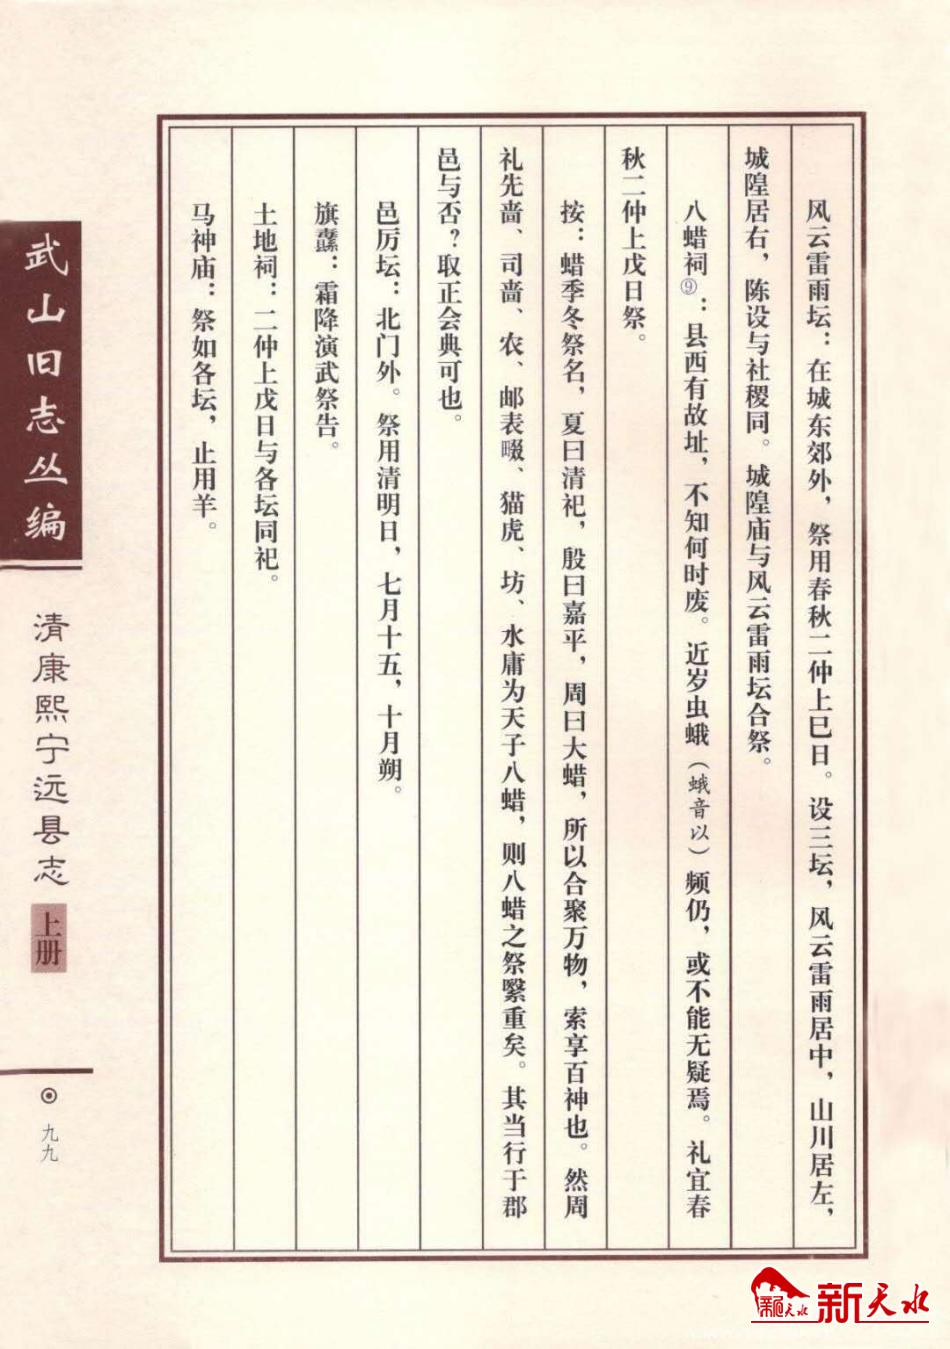 风云雷雨坛：在城东郊外，祭用春秋二仲上巳日。设三坛，风云雷雨居中，山川居左，
城隍居右，陈设与社稷同。城隍庙与风云雷雨坛合祭。
八蜡祠⑨：县西有故址，不知何时废。近岁虫蛾（蛾音以）频仍，或不能无疑焉。礼宜春
秋二仲上戊日祭。
按：蜡季冬祭名，夏曰清祀，殷曰嘉平，周曰大蜡，所以合聚万物，索享百神也。然周
礼先啬、司啬、农、邮表畷、猫虎、坊、水庸为天子八蜡，则八蜡之祭繄重矣。其当行于郡
邑与否？取正会典可也。
邑厉坛：北门外。祭用清明日，七月十五，十月朔。
旗纛：霜降演武祭告。
土地祠：二仲上戊日与各坛同祀。
马神庙：祭如各坛，止用羊。
武山旧志丛编
清康熙宁远县志
上册
九九
新天水